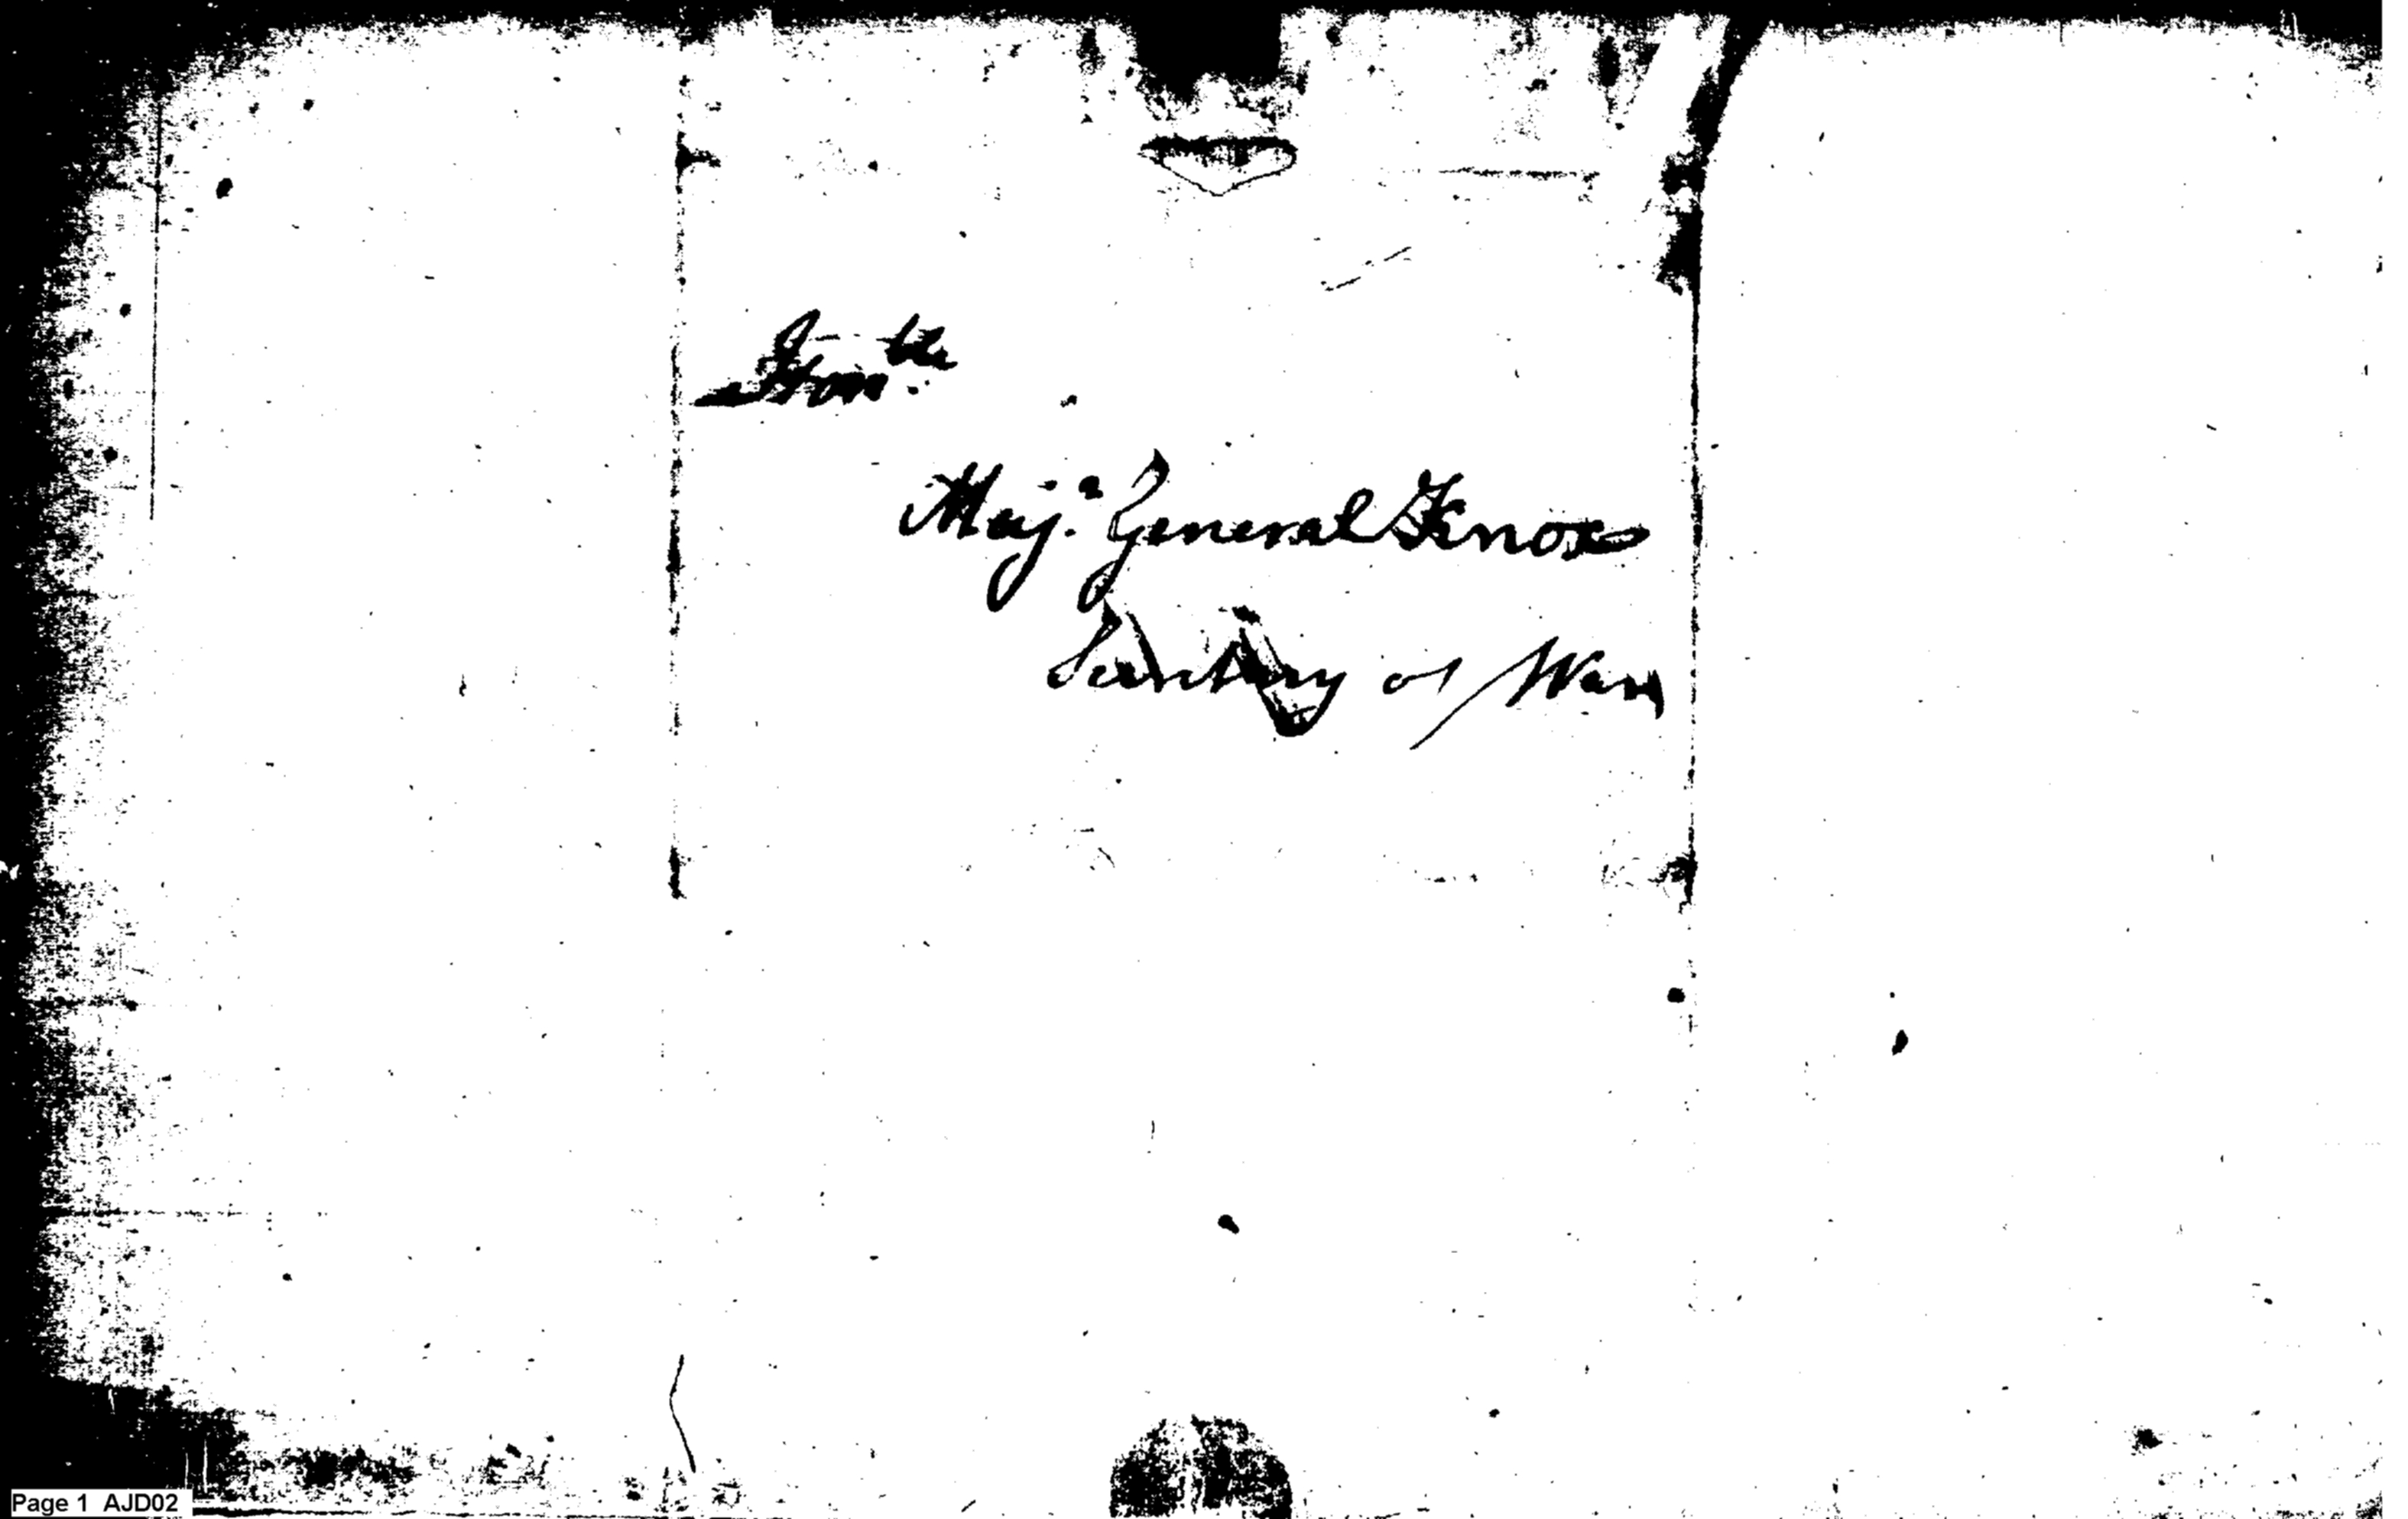 Honble
Majr General Knox
Secretary of War
Page 1 AJD02